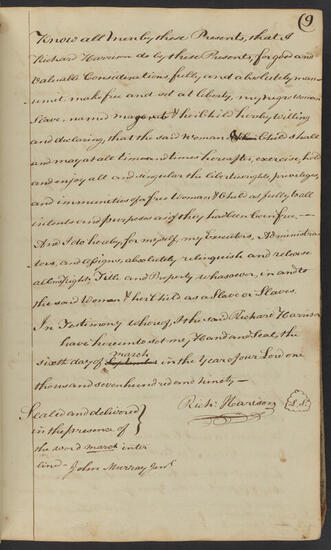 (9
Know all Men by these Presents, that I
Richard Harrison do by these Presents, for good and
Valuable Considerations fully and absolutely man
umit, make free and set at liberty, my Negro woman
Slave, named & her Child hereby willing
and declaring, that the said Woman & her Child shall
and may at all times and times hereafter, exercise, hold
and enjoy all and singular the liberties rights, privileges,
and immunities of a free Woman & Child as fully to all
intents and purposes as if they had been born free. —
And I do hereby for myself, my Executors, Administra
tors, and Assigns, absolutely relinquish and release
all my Right, Title and Property whatsoever, in and to
the said Woman & her Child as a Slave or Slaves.
In Testimony whereof, I the said Richard Harrison
have hereunto set my Hand and Seal, the
march
sixth day of September in the Year of our Lord one
thousand seven hundred and ninety —
Sealed and delivered
Rich: Harrison L.S.
in the presence of
the word march inter
line - John Murray Jun.